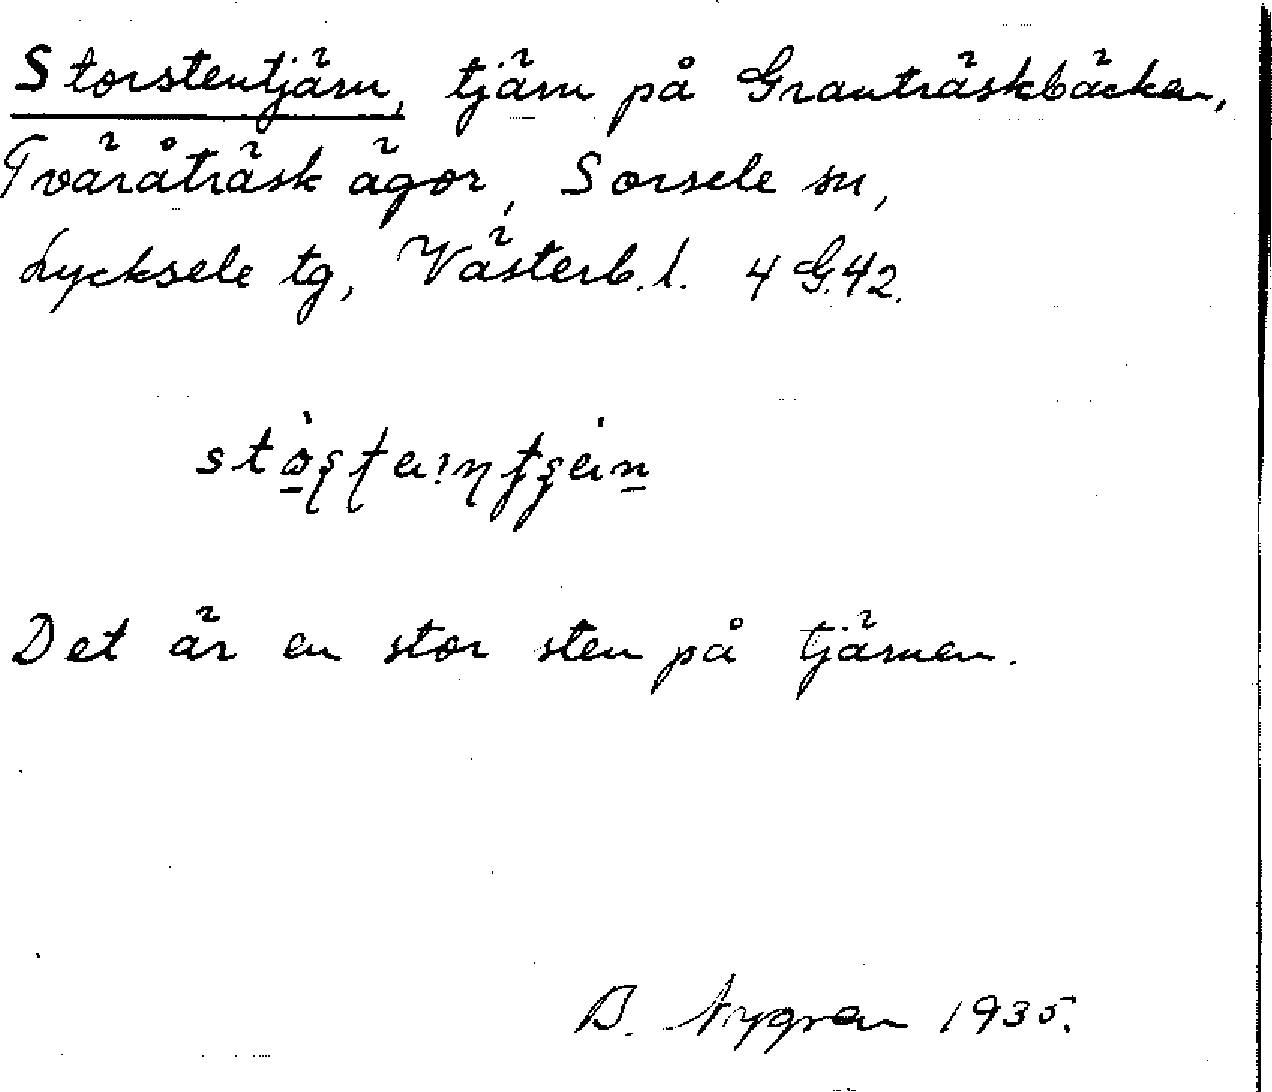 Storstentjärn, tjärn på Granträskbäcken,
Tväråträsk ägor, Sorsele sn,
Lycksele tg, Västerb. l. 4 G.42.
Det är en stor sten på tjärnen.
B. Nygren 1935.